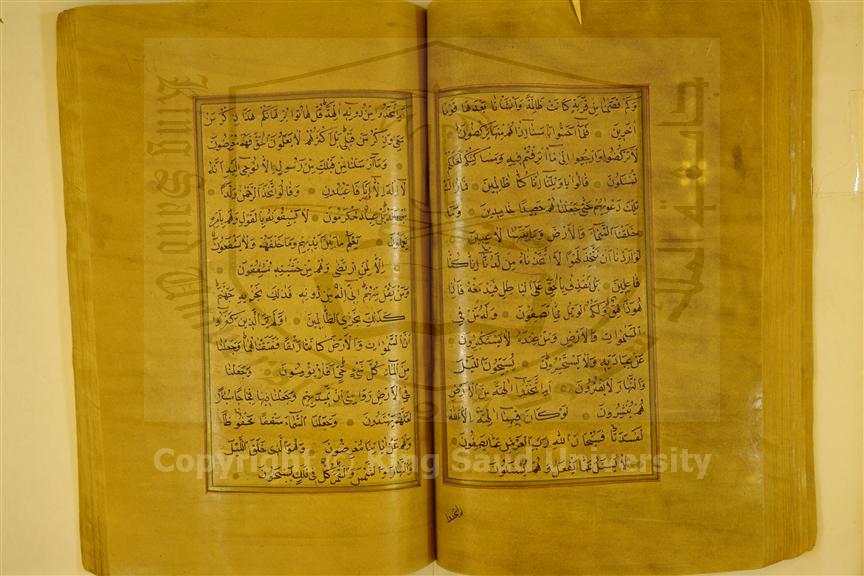 وَكَمْ قَصَمْنَا مِنْ قَرْيَةٍ كَانَتْ ظَالِمَةً وَأَنْشَأْنَا بَعْدَهَا قَوْمًا
آخَرِينَ فَلَمَّا أَحَسُّوا بَأْسَنَا إِذَا هُمْ مِنْهَا يَرْكُضُونَ
لَا تَرْكُضُوا وَارْجِعُوا إِلَى مَا أُتْرِفْتُمْ فِيهِ وَمَسَاكِنِكُمْ لَعَلَّكُمْ
تُسْئَلُونَ قَالُوا يَا وَيْلَنَا إِنَّا كُنَّا ظَالِمِينَ فَمَا زَالَتْ
تِلْكَ دَعْوٰيهُمْ حَتَّى جَعَلْنَاهُمْ حَصِيدًا خَامِدِينَ وَمَا
خَلَقْنَا السَّمَاءَ وَالْأَرْضَ وَمَا بَيْنَهُمَا لَاعِبِينَ
لَوْ أَرَدْنَا أَنْ نَتَّخِذَ لَهْوًا لَاتَّخَذْنَاهُ مِنْ لَدُنَّا إِنْ كُنَّا
فَاعِلِينَ بَلْ نَقْذِفُ بِالْحَقِّ عَلَى الْبَاطِلِ فَيَدْمَغُهُ فَإِذَا
هُوَ زَاهِقٌ وَلَكُمُ الْوَيْلُ مِمَّا تَصِفُونَ وَلَهُ مَنْ فِي
السَّمٰوَاتِ وَالْأَرْضِ وَمَنْ عِنْدَهُ لَا يَسْتَكْبِرُونَ
عَنْ عِبَادَتِهِ وَلَا يَسْتَحْسِرُونَ يُسَبِّحُونَ اللَّيْلَ
وَالنَّهَارَ لَا يَفْتُرُونَ أَمِ اتَّخَذُوا آلِهَةً مِنَ الْأَرْضِ
هُمْ يُنْشِرُونَ لَوْ كَانَ فِيهِمَا آلِهَةٌ إِلَّا اللَّهُ
لَفَسَدَتَا فَسُبْحَانَ اللَّهِ رَبِّ الْعَرْشِ عَمَّا يَصِفُونَ
لَا يُسْئَلُ عَمَّا يَفْعَلُ وَهُمْ يُسْئَلُونَ
أم اتخذوا
أَمِ اتَّخَذُوا مِنْ دُونِهِ آلِهَةً قُلْ هَاتُوا بُرْهَانَكُمْ هَذَا ذِكْرُ مَنْ
مَعِيَ وَذِكْرُ مَنْ قَبْلِي بَلْ أَكْثَرُهُمْ لَا يَعْلَمُونَ الْحَقَّ فَهُمْ مُعْرِضُونَ
وَمَا أَرْسَلْنَا مِنْ قَبْلِكَ مِنْ رَسُولٍ إِلَّا نُوحِي إِلَيْهِ أَنَّهُ
لَا إِلَهَ إِلَّا أَنَا فَاعْبُدُونِ وَقَالُوا اتَّخَذَ الرَّحْمٰنُ وَلَدًا
سُبْحَانَهُ بَلْ عِبَادٌ مُكْرَمُونَ لَا يَسْبِقُونَهُ بِالْقَوْلِ وَهُمْ بِأَمْرِهِ
يَعْمَلُونَ يَعْلَمُ مَا بَيْنَ أَيْدِيهِمْ وَمَا خَلْفَهُمْ وَلَا يَشْفَعُونَ
إِلَّا لِمَنِ ارْتَضَى وَهُمْ مِنْ خَشْيَتِهِ مُشْفِقُونَ
وَمَنْ يَقُلْ مِنْهُمْ إِنِّي إِلَهٌ مِنْ دُونِهِ فَذَلِكَ نَجْزِيهِ جَهَنَّمَ
كَذَلِكَ نَجْزِي الظَّالِمِينَ أَوَلَمْ يَرَ الَّذِينَ كَفَرُوا
أَنَّ السَّمٰوَاتِ وَالْأَرْضَ كَانَتَا رَتْقًا فَفَتَقْنَاهُمَا وَجَعَلْنَا
مِنَ الْمَاءِ كُلَّ شَيْءٍ حَيٍّ أَفَلَا يُؤْمِنُونَ وَجَعَلْنَا
فِي الْأَرْضِ رَوَاسِيَ أَنْ تَمِيدَ بِهِمْ وَجَعَلْنَا فِيهَا فِجَاجًا سُبُلًا
لَعَلَّهُمْ يَهْتَدُونَ وَجَعَلْنَا السَّمَاءَ سَقْفًا مَحْفُوظًا
وَهُمْ عَنْ آيَاتِنَا مُعْرِضُونَ وَهُوَ الَّذِي خَلَقَ اللَّيْلَ
وَالنَّهَارَ وَالشَّمْسَ وَالْقَمَرَ كُلٌّ فِي فَلَكٍ يَسْبَحُونَ
Copyright © King Saud University
King Saud University
جامعة الملك